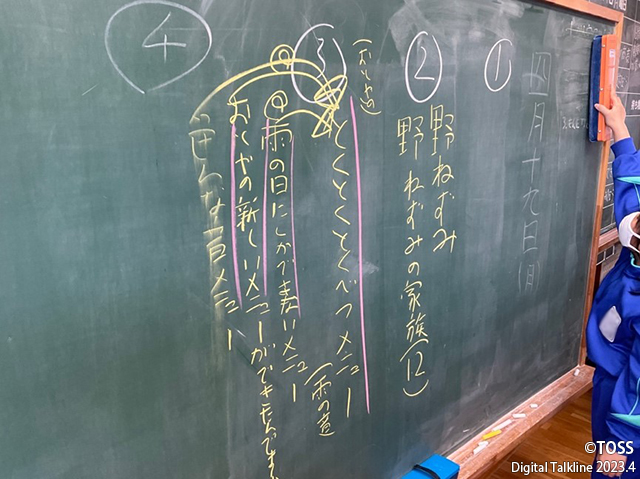 四月十九日
①
野ねずみ
②
野ねずみの家族(12)
③
とくとくとくべつメニュー
(雨の音
雨の日にしかで
いメニュー
おくやの新しいメニューができたんです
メニュー
④
©TOSS
Digital Talkline 2023.4